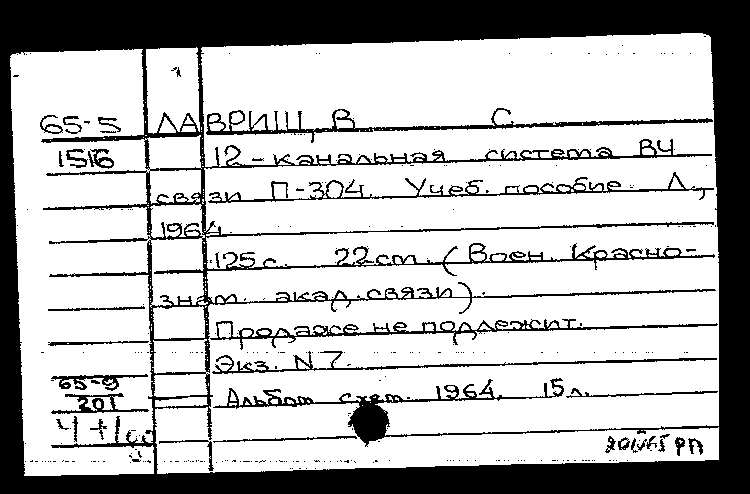 65-5 ЛАВРИЩ, В С.
1516 12-канальная система ВЧ
связи П-304. Учеб. пособие. Л.,
1964.
125с. 22см. (Воен. Красно-
знам. акад. связи).
Продаже не подлежит.
Экз. N 7.
65-9
201 Альбом схем. 1964. 15л.